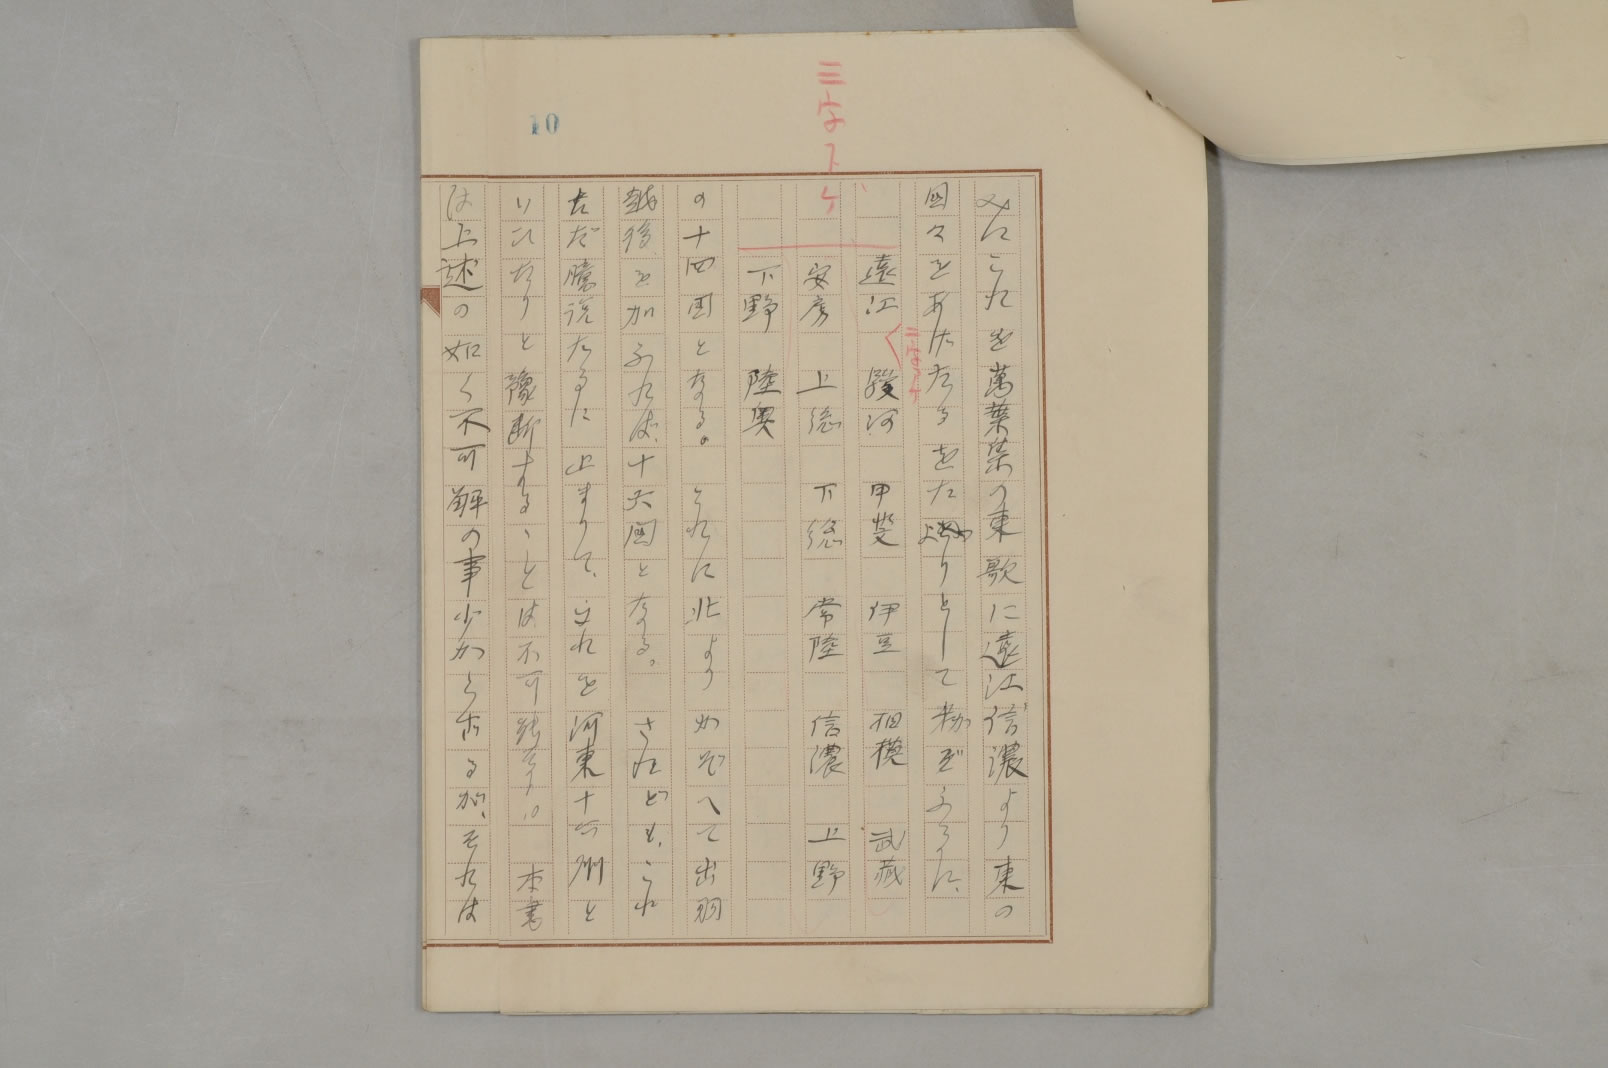 三字下ケ
10
みにこれを萬葉集の東歌に遠江信濃より東の
国々をあげたるをたよりとして数ぞふるに、
遠江　駿河　甲斐　伊豆　相模　武蔵
三字下ケ
安房　上総　下総　常陸　信濃　上野
下野　陸奥
の十四国となる。これに北よりかぞへて出羽
越後を加ふれば、十六国となる。されども、これ
たゞ臆説たるに止まりて、これを河東十六州と
いひたりと豫断することは不可能なり。本書
は上述の如く不可解の事少からざるが、それは